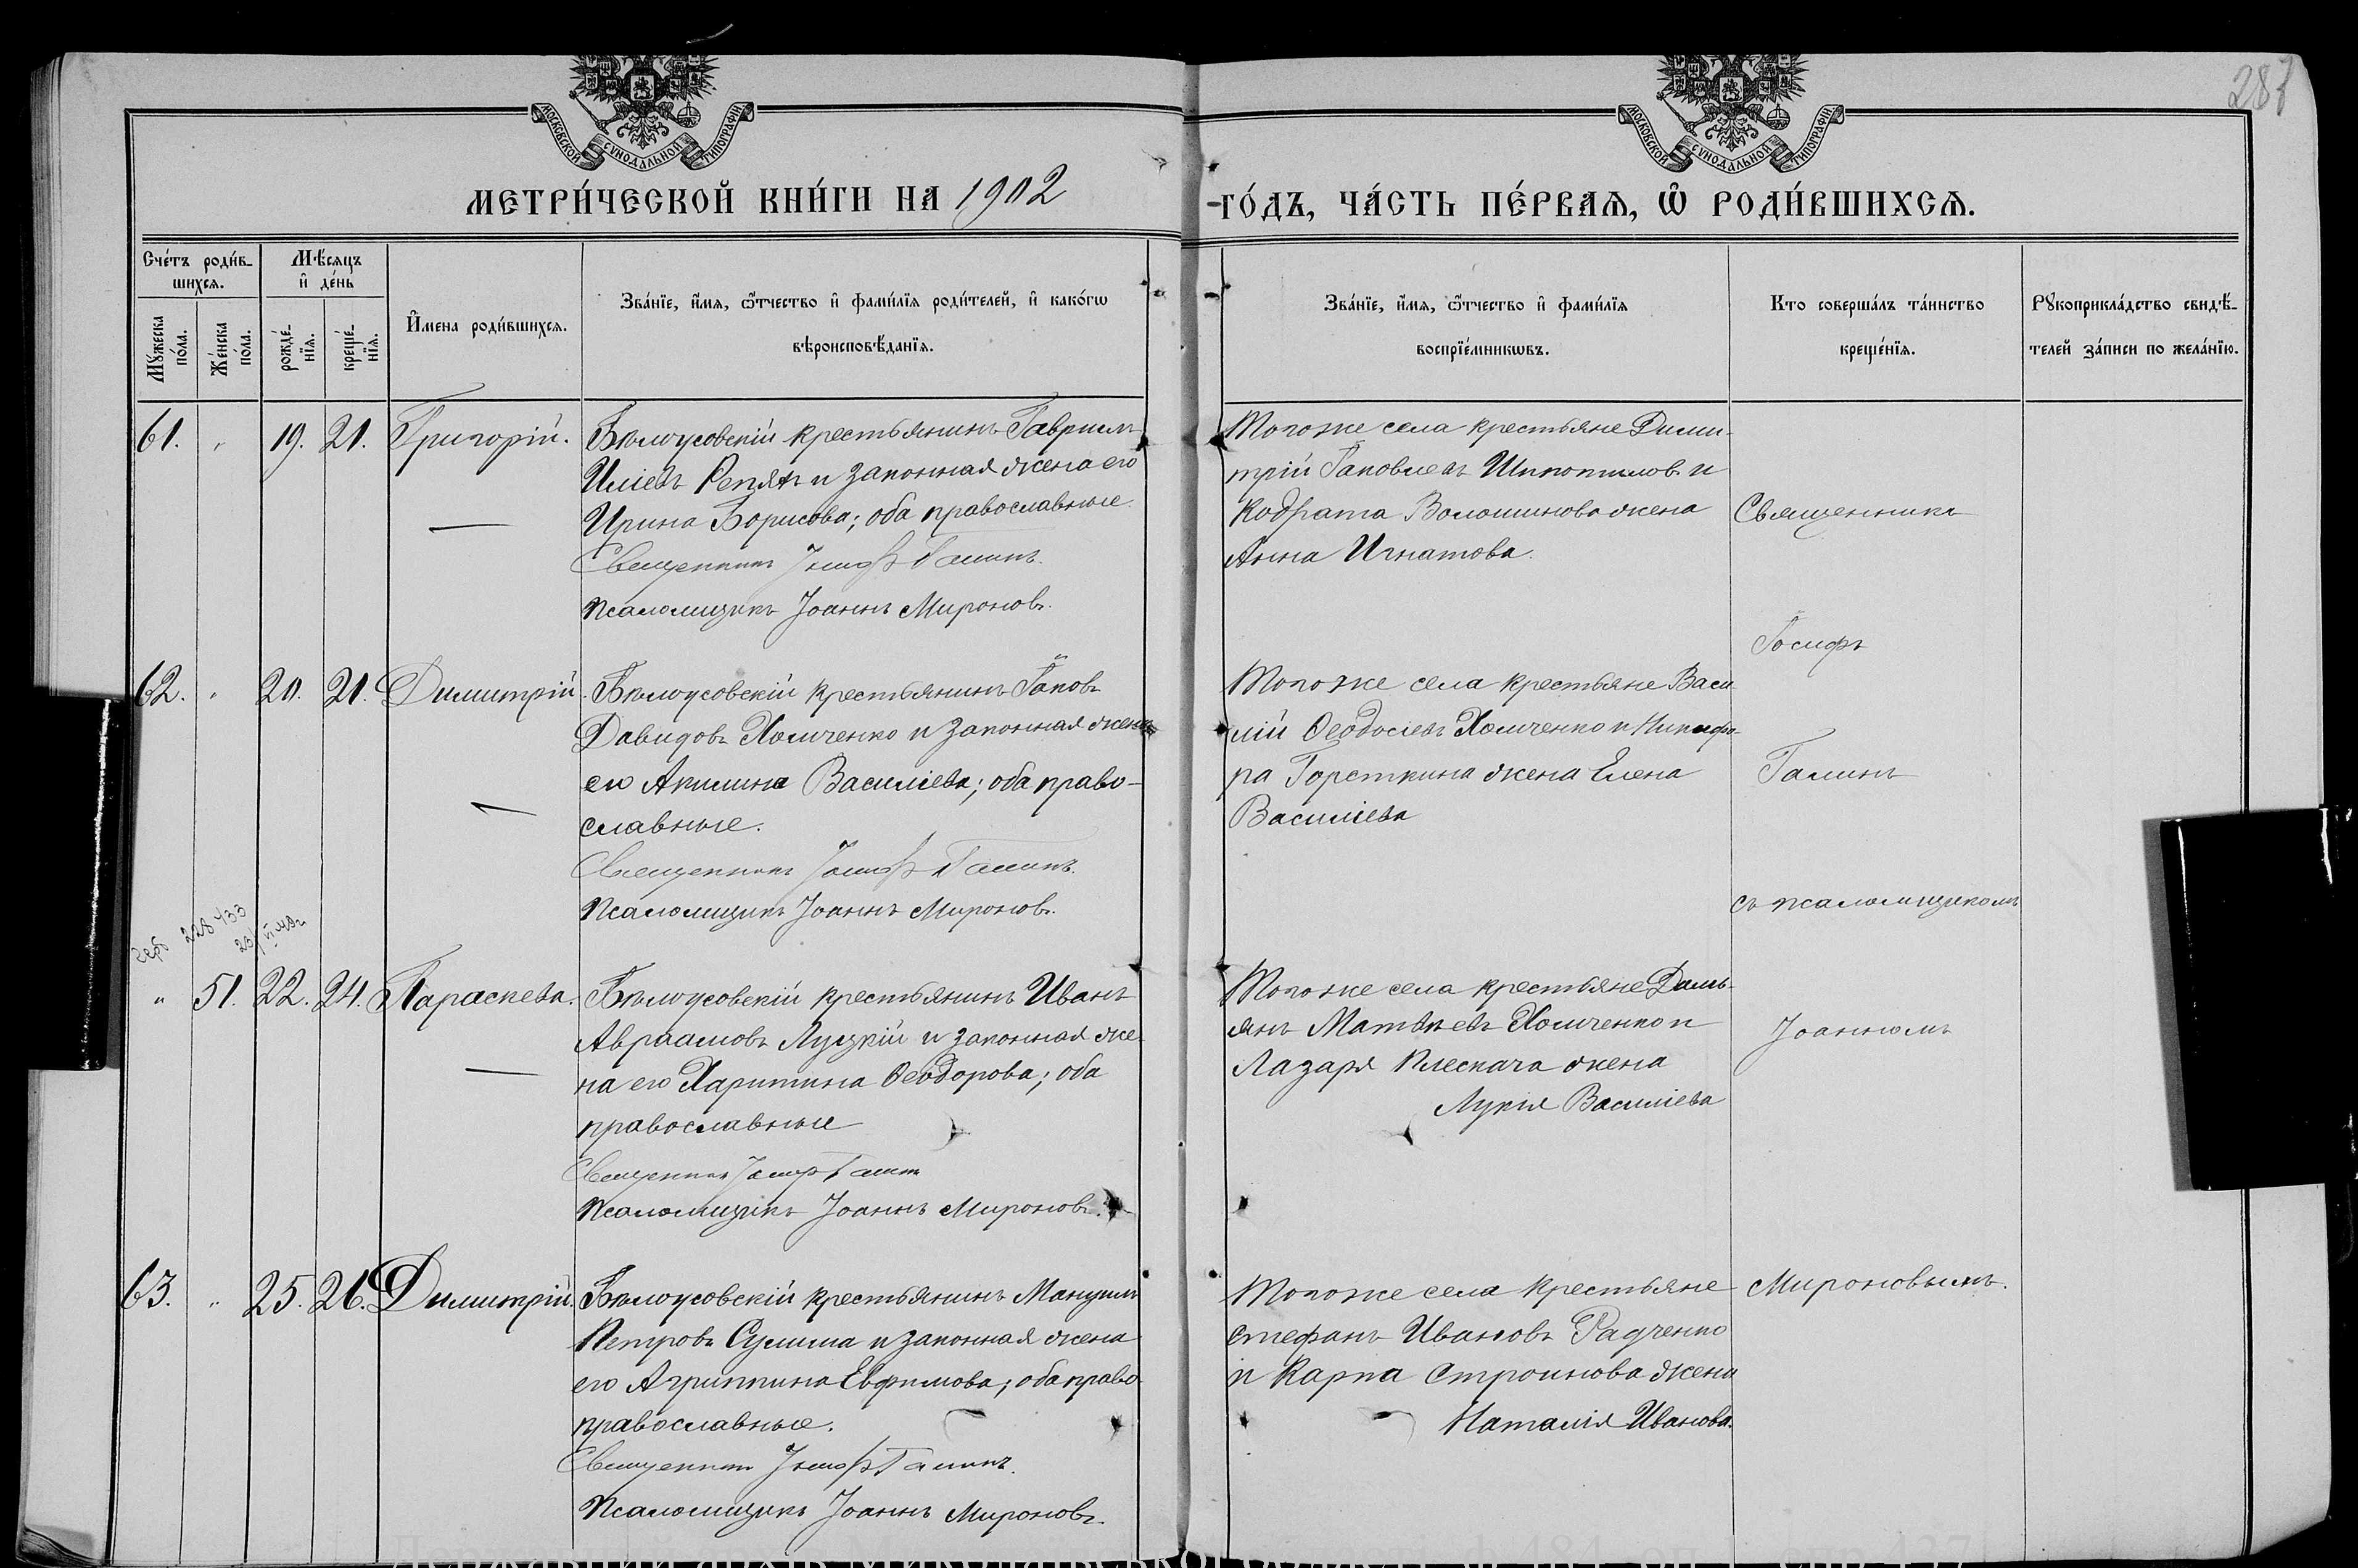 287
МОСКОВСКОЙ СѴНОДАЛЬНОЙ ТИПОГРАФІИ
МОСКОВСКОЙ СѴНОДАЛЬНОЙ ТИПОГРАФІИ
МЕТРИ́ЧЕСКОЙ КНИ́ГИ НА 1902
ГО́ДЪ, ЧА́СТЬ ПЕ́РВАѦ, Ѡ҆ РОДИ́ВШИХСѦ.
Сче́тъ роди́в-
шихсѧ.
Мꙋ́жеска по́ла.
Же́нска по́ла.
Мѣ́сѧцъ
и҆ де́нь
рожде́-нїѧ.
креще́-нїѧ.
И҆мена роди́вшихсѧ.
Зва́нїе, и҆́мѧ, ѻ҆́тчество и҆ фами́лїѧ роди́телей, и҆ како́гѡ
вѣроисповѣ́данїѧ.
Зва́нїе, и҆́мѧ, ѻ҆́тчество и҆ фами́лїѧ
воспрїе́мникѡвъ.
Кто соверша́лъ та́инство
креще́нїѧ.
Рꙋкоприкла́дство свидѣ́-
телей за́писи по жела́нїю.
61. " 19. 21. Григорій. Бѣлоусовскій крестьянинъ Гавріилъ
Иліевъ Репях и законная жена его
Ирина Борисова; оба православные.
Священникъ Іосифъ Галинъ.
Псаломщикъ Іоаннъ Мироновъ.
Того же села крестьяне Дими-
трій Іаковлевъ и
Кодрата Волошинова жена
Анна Игнатова.
Священникъ
Іосифъ
62. " 20. 21. Димитрій. Бѣлоусовскій крестьянинъ Іаковъ
Давидовъ Хомченко и законная жена
его Акилина Василіева; оба право-
славные.
Священникъ Іосифъ Галинъ.
Псаломщикъ Іоаннъ Мироновъ.
Того же села крестьяне Васи-
лій Ѳеодосіевъ Хомченко и Никифо-
ра Горсткина жена Елена
Василіева
Галинъ
съ псаломщикомъ
" 51. 22. 24. Параскева. Бѣлоусовскій крестьянинъ Иванъ
Авраамовъ Луцкій и законная же-
на его Харитина Ѳеодорова; оба
православные
Священникъ Іосифъ Галинъ
Псаломщикъ Іоаннъ Мироновъ.
Того же села крестьяне Дамь-
янъ Матѳіевъ Хомченко и
Лазаря Плескача жена
Лукія Василіева
Іоанномъ
63. " 25. 26. Димитрій. Бѣлоусовскій крестьянинъ Мануилъ
Петровъ Сулима и законная жена
его Агриппина Евфимова; оба право
православные.
Священникъ Іосифъ Галинъ.
Псаломщикъ Іоаннъ Мироновъ.
Того же села крестьяне
Стефанъ Ивановъ Радченко
и Карпа Строинова жена
Наталія Иванова.
Мироновымъ.